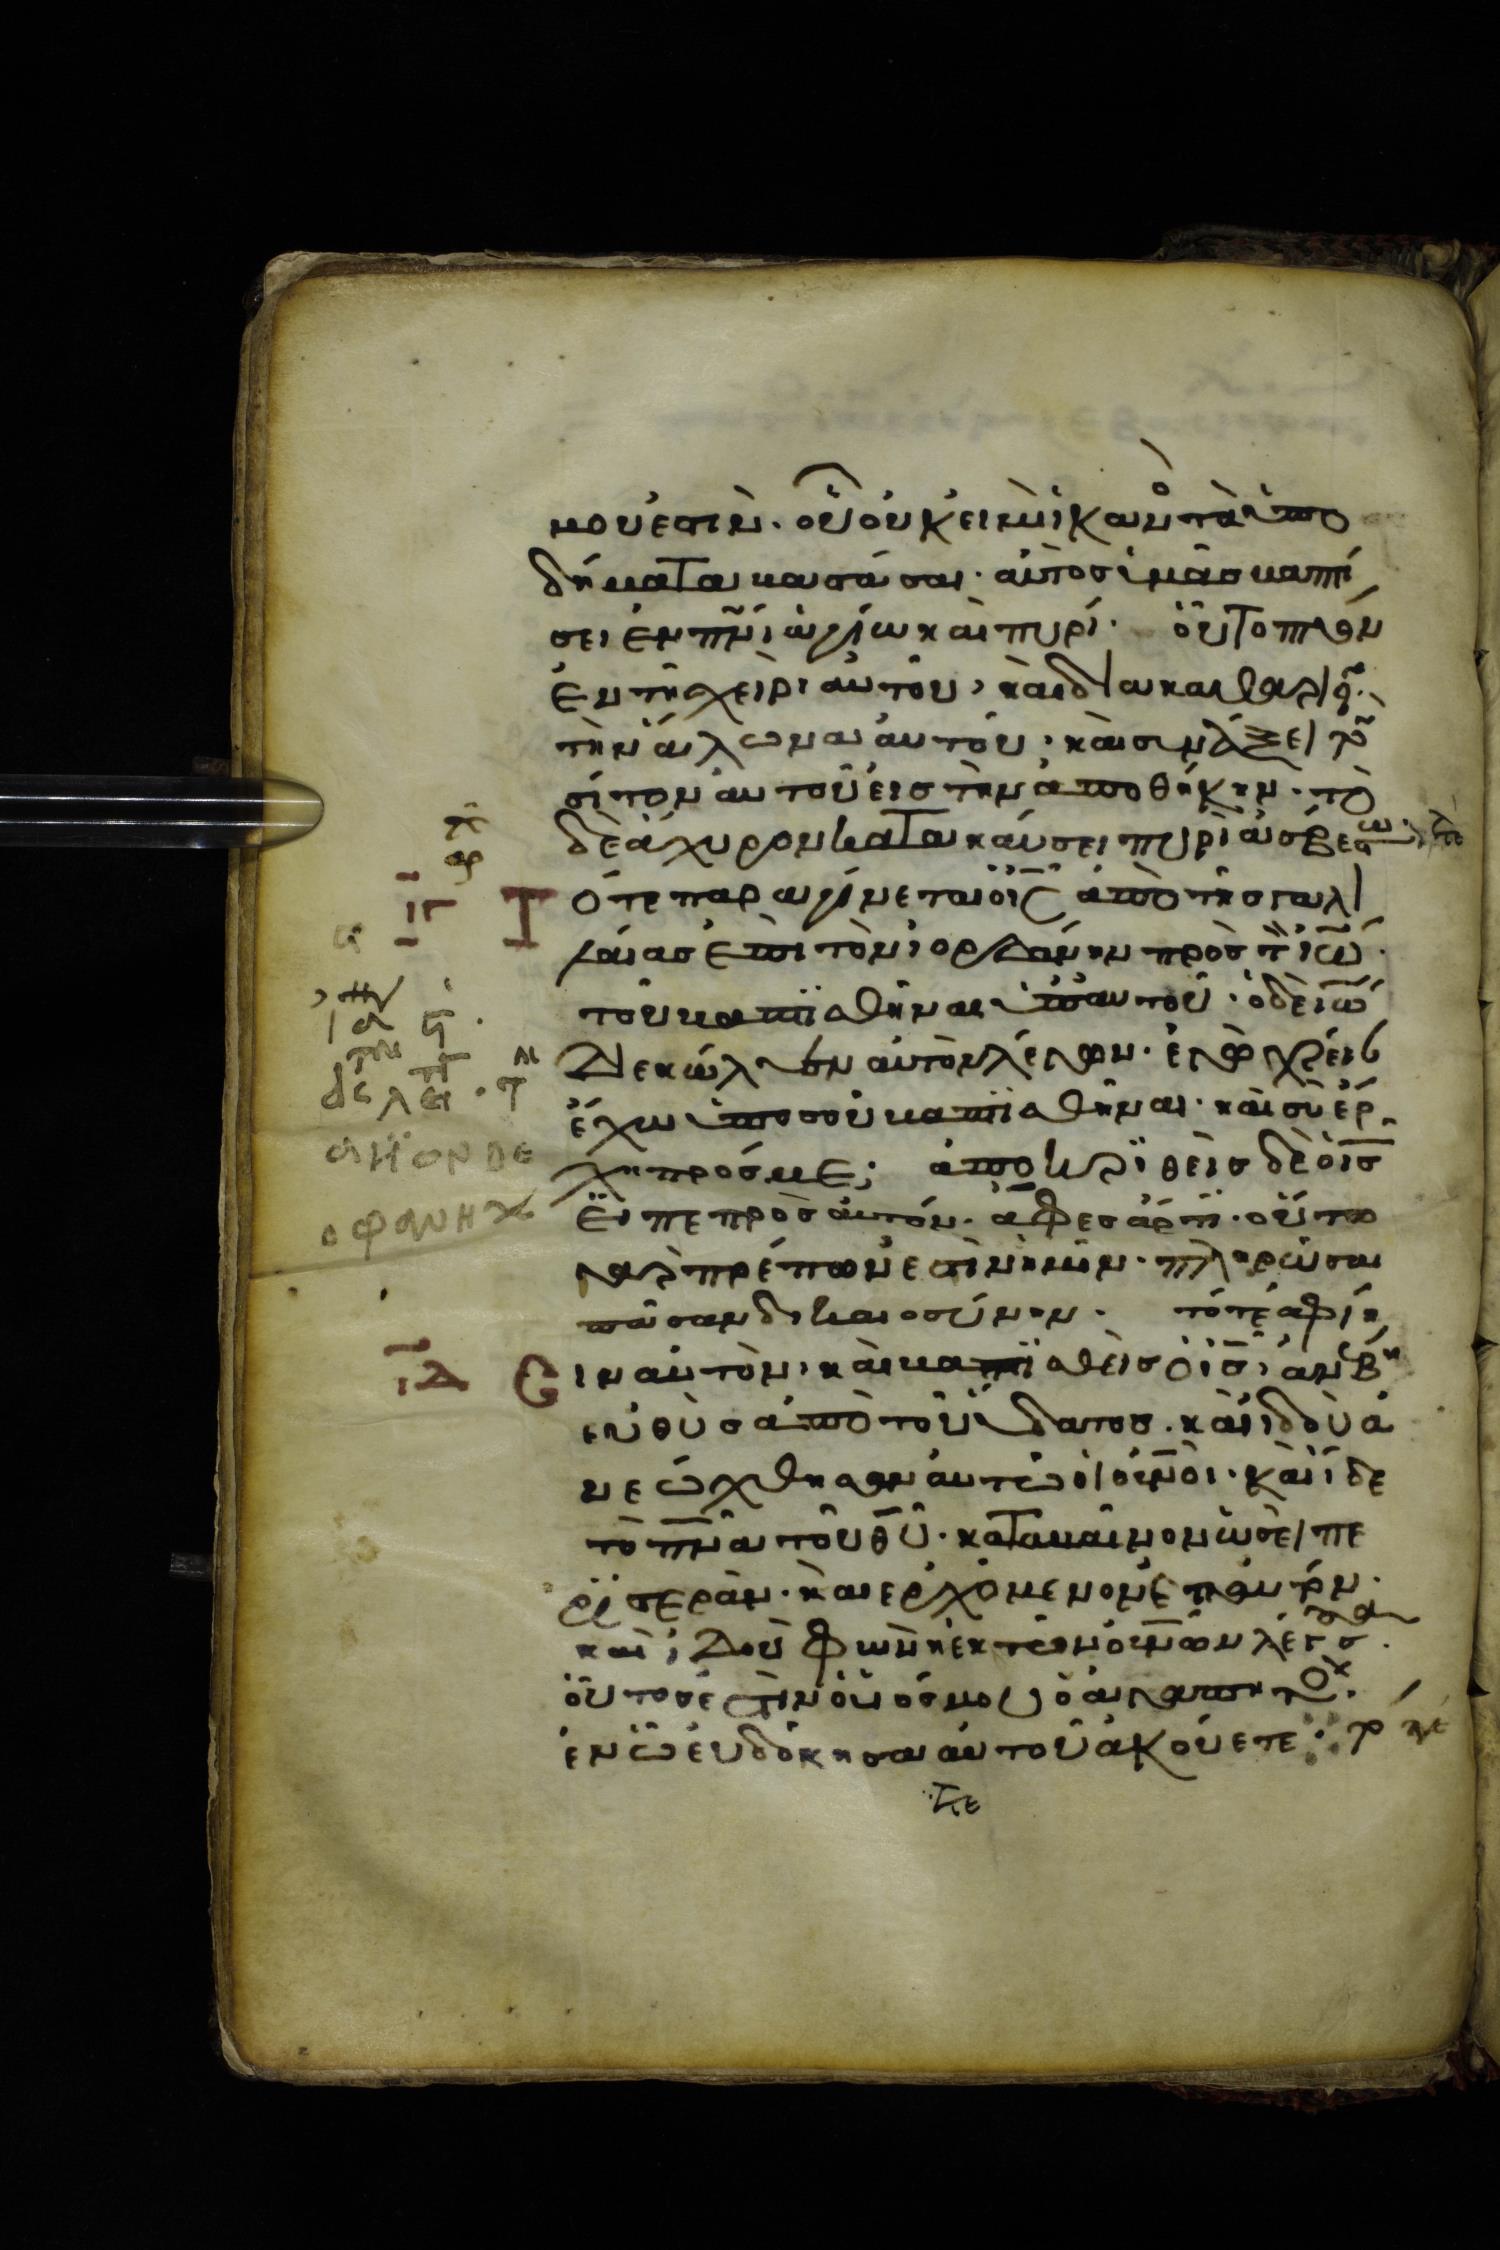 μου ἐστὶν. οὗ οὐκ εἰμὶ ἱκανὸς τὰ ὑπο
δήματα βαστάσαι. αὐτὸς ὑμᾶς βαπτί
σει ἐν πνι ἁγίω καὶ πυρί. οὗ τὸ πτύον
ἐν τῆ χειρὶ αὐτοῦ, καὶ διακαθαριεῖ
τὴν ἅλωνα αὐτοῦ. καὶ συνάξει τὸν
σίτον αὐτοῦ εἰς τὴν ἀποθήκην. τὸ
δὲ ἄχυρον κατακαύσει πυρὶ ἀσβέστω.
ιγ Τότε παραγίνεται ὁ ις ἀπὸ τῆς γαλι
λαίας ἐπὶ τὸν ἰορδάνην πρὸς τὸν ιω.
τοῦ βαπτισθῆναι ὑπ αὐτοῦ. ὁ δὲ ιω
διεκώλυεν αὐτὸν λέγων. ἐγὼ χρείαν
ἔχω ὑπὸ σοῦ βαπτισθῆναι. καὶ σὺ ἔρ
χη πρός με; ἀποκριθεὶς δὲ ὁ ις
εἶπε πρὸς αὐτόν. ἄφες ἄρτι. οὕτω
γὰρ πρέπον ἐστὶν ἡμῖν. πληρῶσαι
πᾶσαν δικαιοσύνην. τότε ἀφί
ησιν αὐτὸν, καὶ
ιδ βαπτισθεὶς ὁ ις, ἀνέβη
εὐθὺς ἀπὸ τοῦ ὕδατος. καὶ ἰδοὺ ἀ
νεώχθησαν αὐτῶ οἱ οὐνοι. καὶ ἴδε
τὸ πνα τοῦ θυ. καταβαῖνον ὡσεὶ πε
ριστερὰν. καὶ ἐρχόμενον ἐπ αὐτόν.
καὶ ἰδοὺ φωνὴ ἐκ τῶν οὐνων λέγουσα.
οὗτός ἐστὶν ὁ υἱός μου ὁ ἀγαπητὸς.
ἐν ὧ εὐδόκησα αὐτοῦ ἀκούετε.